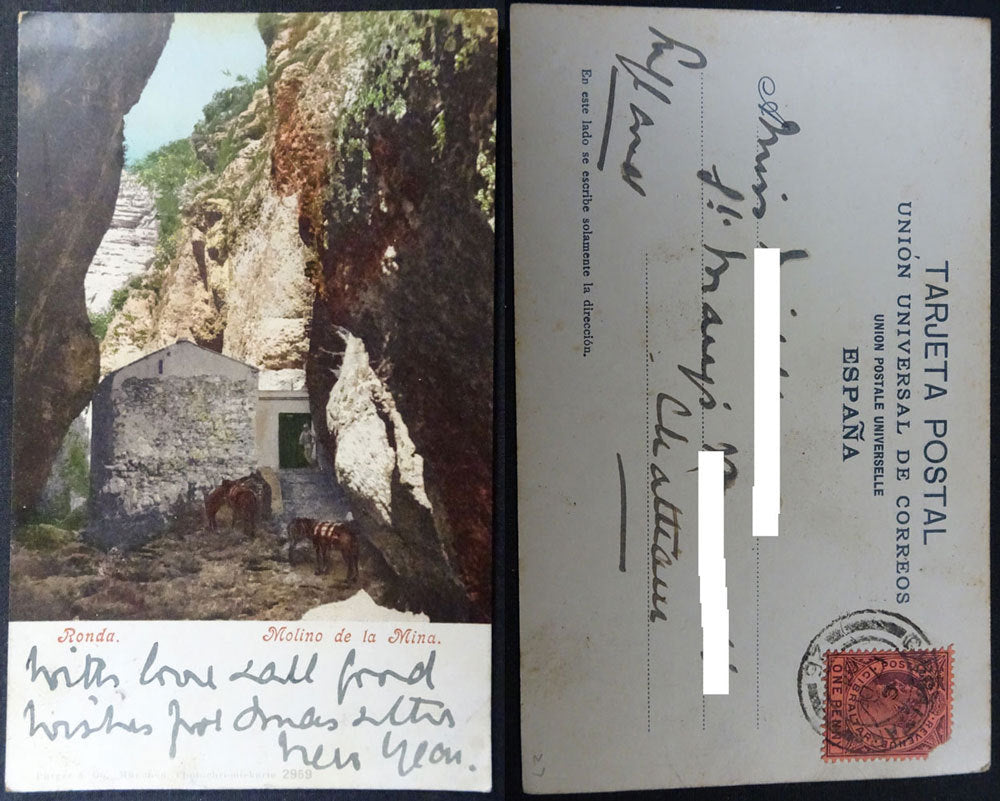 Ronda. Molino de la Mina.
With love & all good
wishes for Xmas & the
New Year.
Purger & Co., München, Photochromiekarte 2959
TARJETA POSTAL
UNIÓN UNIVERSAL DE CORREOS
UNION POSTALE UNIVERSELLE
ESPAÑA
Miss
St. Mary's
Château
England
En este lado se escribe solamente la dirección.
POSTAGE & REVENUE
GIBRALTAR
ONE PENNY
27